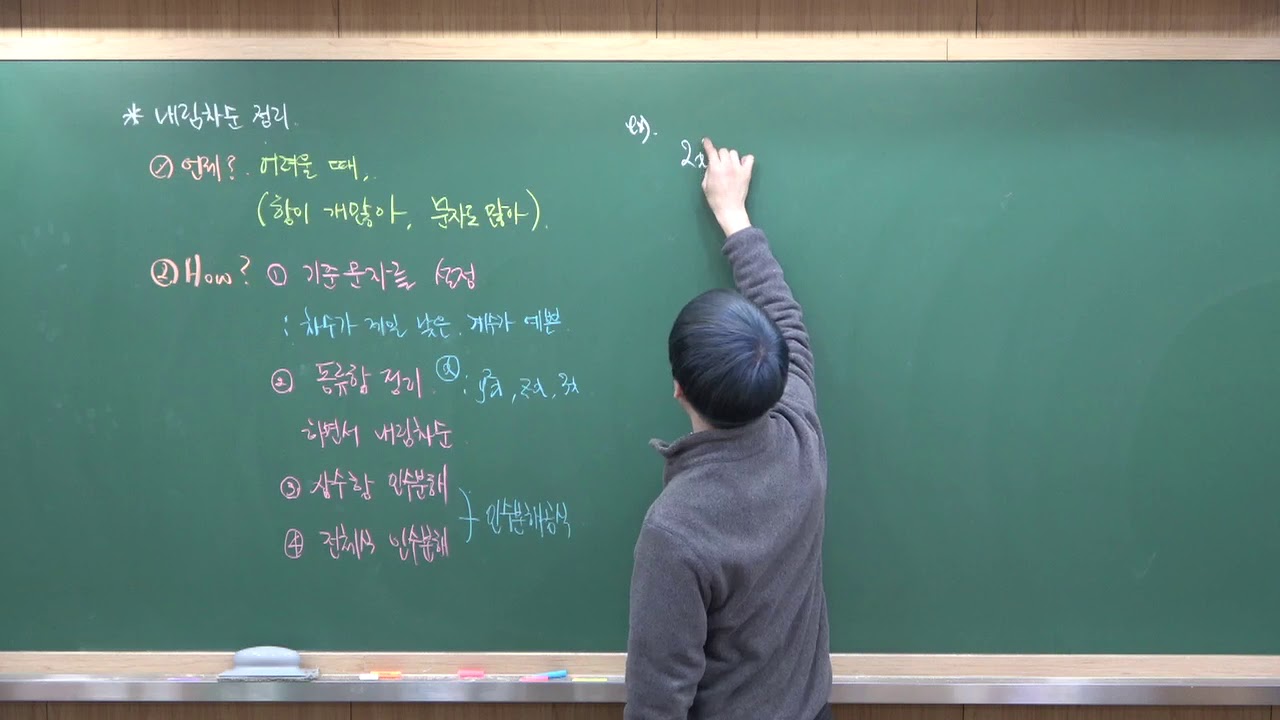 * 내림차순 정리.
① 언제? 어려울 때,
(항이 개많아, 문자도 많아).
② How? ① 기준문자를 설정
: 차수가 제일 낮은. 계수가 예쁜.
② 동류항 정리 ⓧ : y²x, zx, 3x
하면서 내림차순
③ 상수항 인수분해
④ 전체식 인수분해
} 인수분해공식
ex).
2x